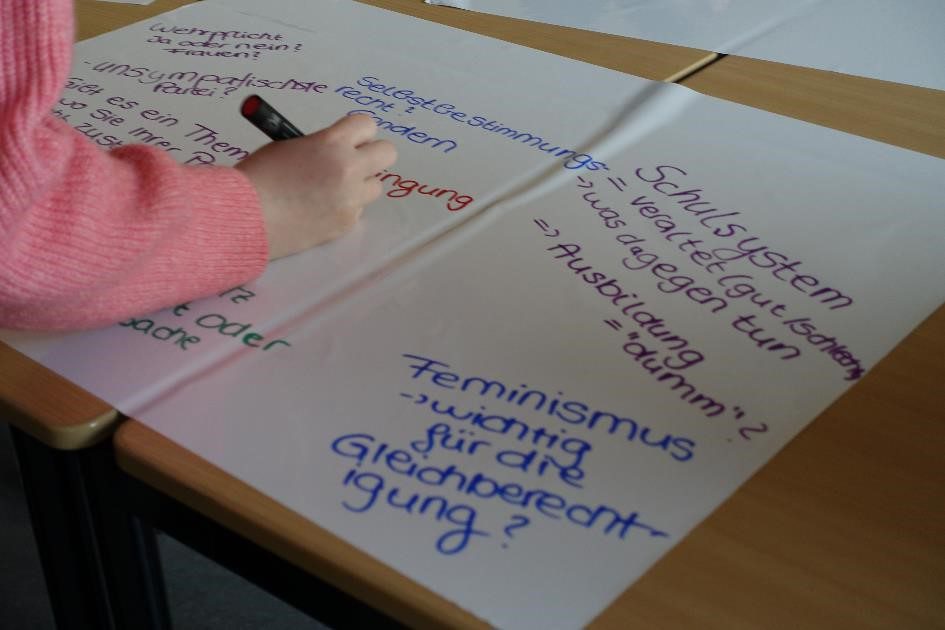 Wehrpflicht
Ja oder nein?
Frauen?
- unsympatischste
Partei?
Giet es ein Them
wo sie Ihrer Pa
zust
Selbstbestimmungs-
recht?
Gendern
ingung
t oder
sache
Schulsystem
= veraltet (gut/schlecht)
-> was dagegen tun
=> Ausbildung
= "dumm"?
Feminismus
-> wichtig
für die
Gleichberecht-
igung?